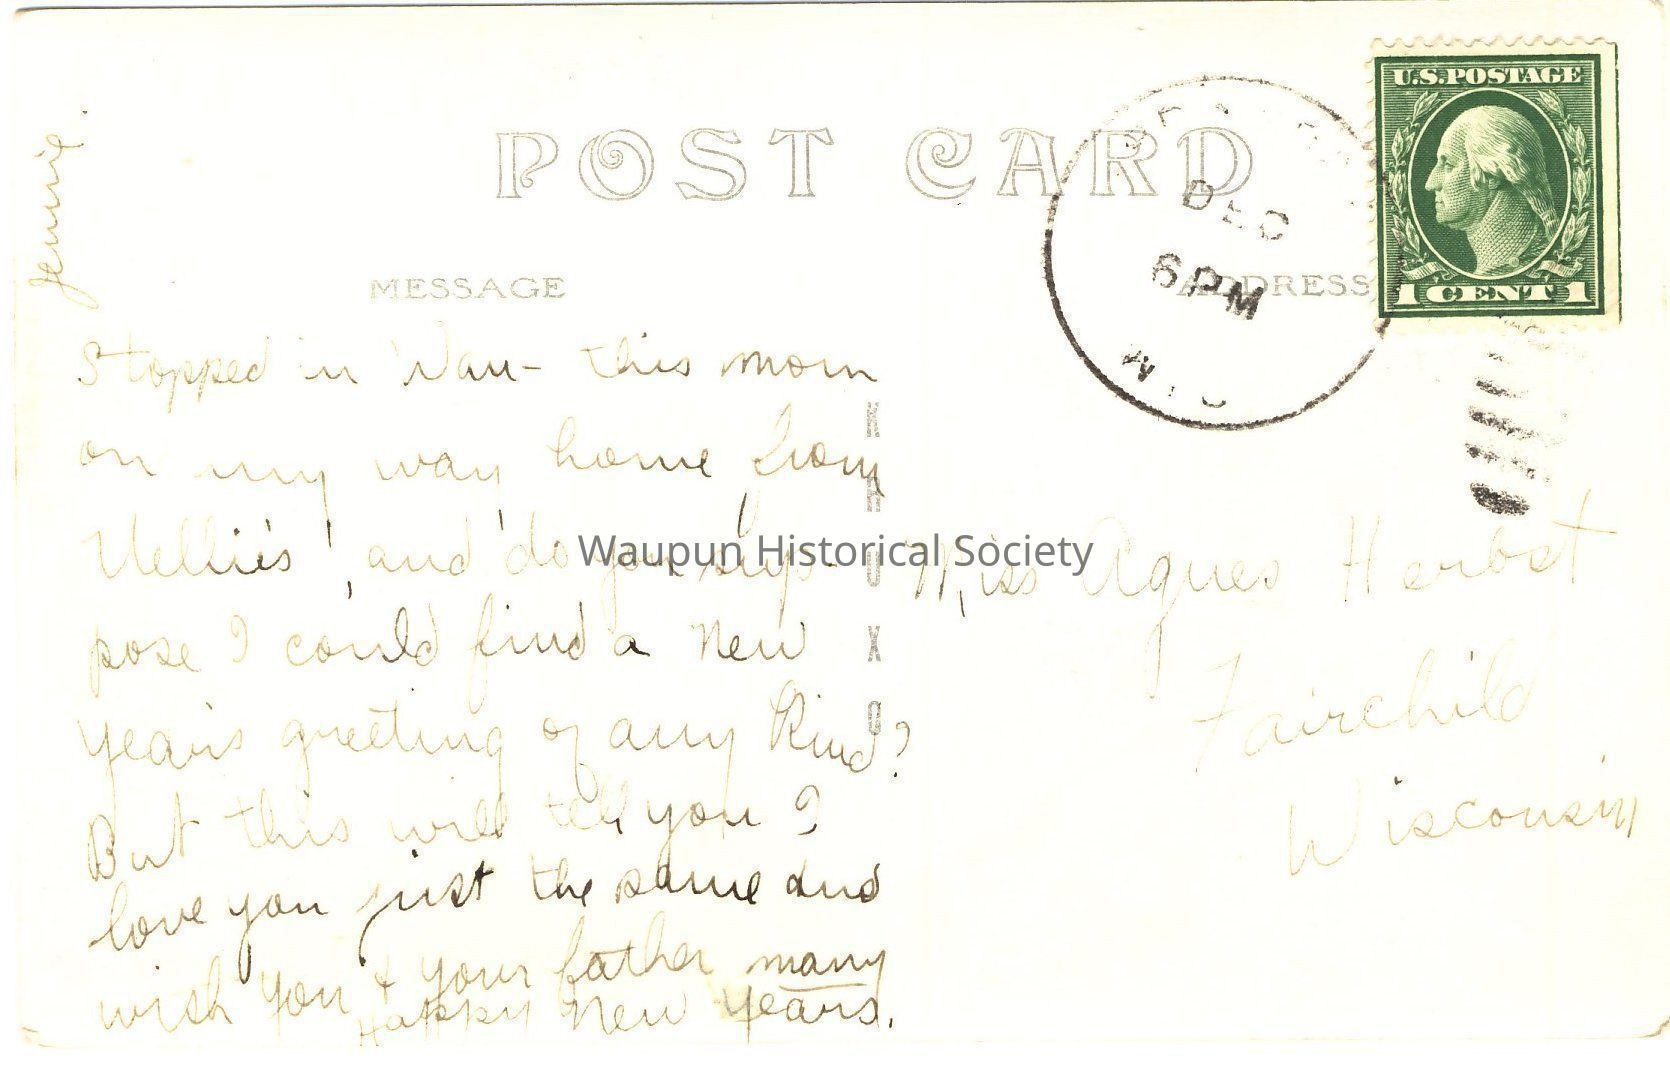 POST CARD
U.S. POSTAGE
1 CENT 1
DEC
6 PM
WIS
MESSAGE
ADDRESS
Jennie.
Stopped in Wau- this morn
on my way home from
Nellie's, and do you sup-
pose I could find a New
Year's greeting of any kind?
But this will tell you I
love you just the same and
wish you & your father many
Happy New Years.
KRUXO
Waupun Historical Society
Miss Agnes Herbst
Fairchild
Wisconsin